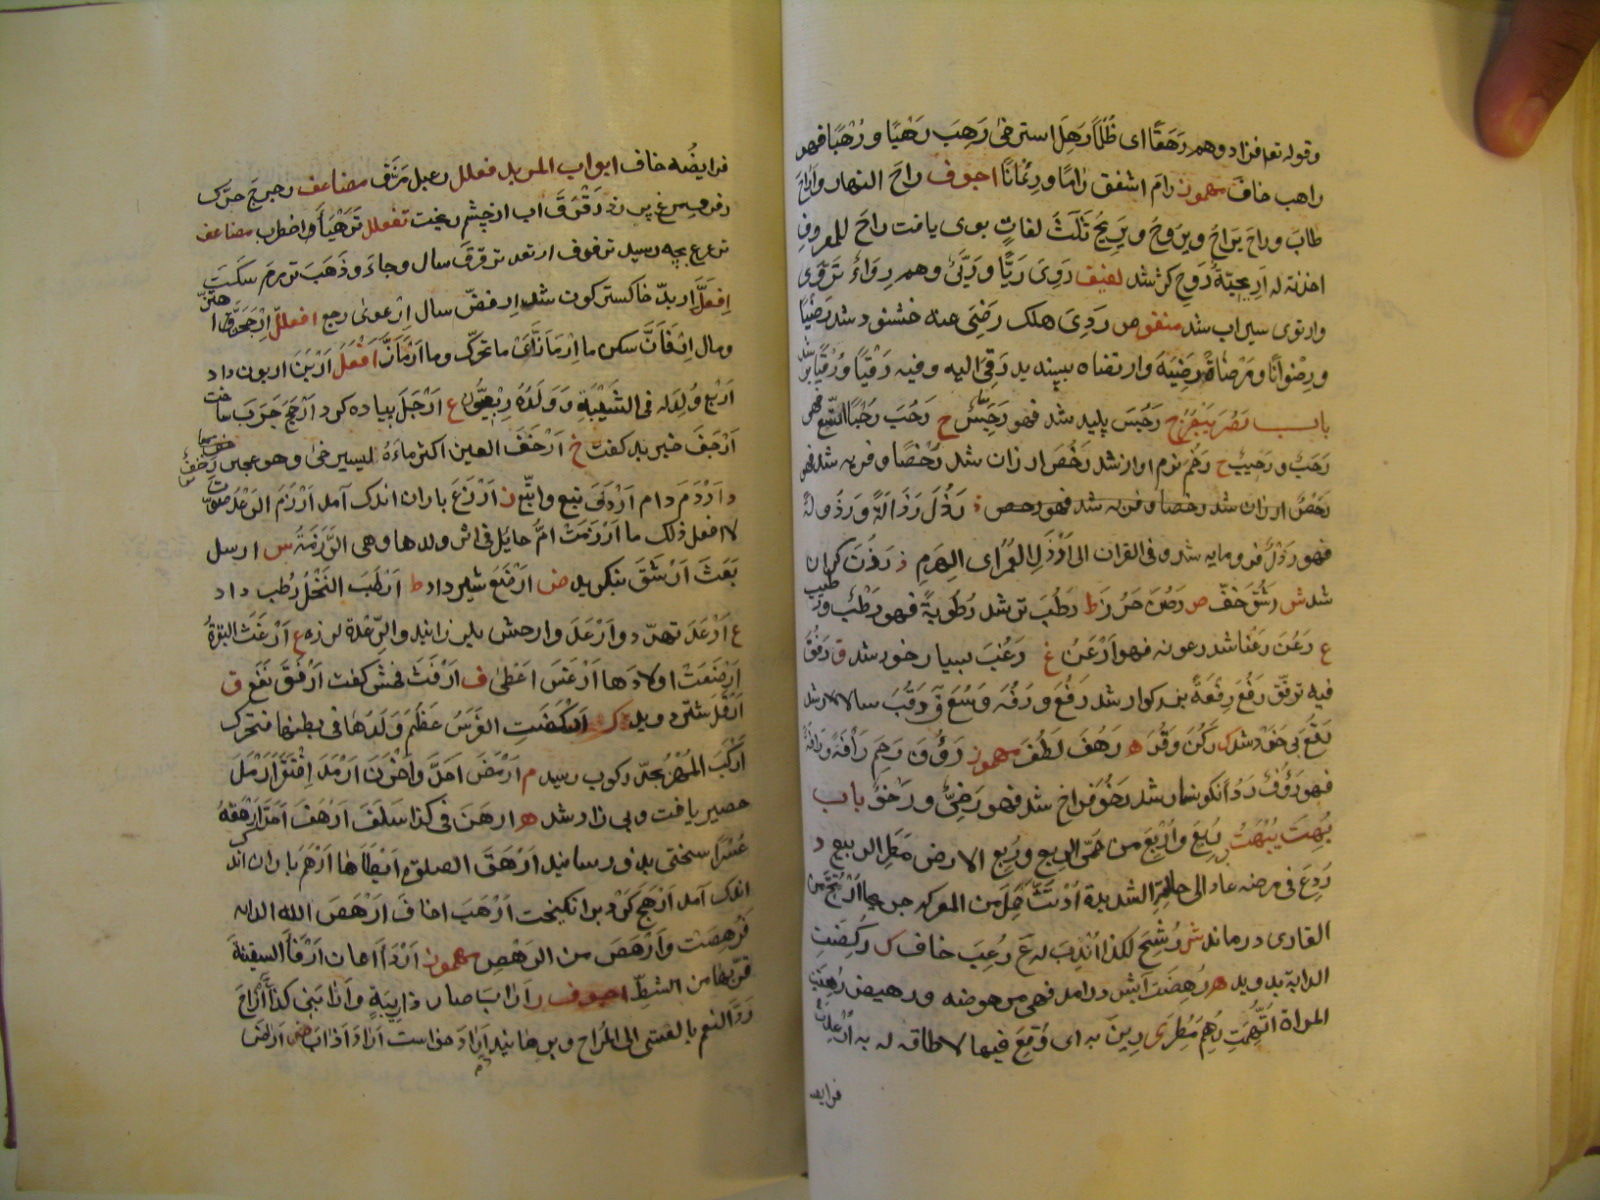 وقوله تعا فزادوهم رَهَقًا اى ظُلْمًا رَهِلَ استرخى رَهِبَ رَهْبًا و رُهْبًا فهو
راهب خافَ مهموز رامَ اشفق رامًا ورِئمانًا اجوف راحَ النهار وَارَاحَ
طابَ وراحَ يَرَاحُ ويَرُوحُ ويَرِيحُ ثَلَثَ لغاتٍ بوى يافت راحَ للمعروفِ
اخذته له اَرْيَحِيَّةٌ رَوِحَ كرشد لفيف رَوِىَ رَيًّا و رِيًّا وهم رِوَاءٌ تَرَوَّى
وارتوى سيراب شد منقوص رَدِىَ هلك رَضِىَ عنه خشنود شد رَضِيًا
ورِضْوانًا ومَرْضَاةً رَضِيَهُ وارتضاه پسنديد رَقِىَ اليه وفيه رَقْيًا ورُقِيًّا بر شد
باب نَصُرَ يَنْصُرُ ج رَجُسَ پليد شد فهو رَجِسٌ ح رَحُبَ رُحْبًا اتّسع فهو
رَحْبٌ و رَحِيبٌ خ رَخُمَ نرم اواز شد رَخُصَ ارزان شد رُخْصًا و فربه شد فهو
رَخْصٌ ارزان شد رخصا و فربه شد فهو رخص ذ رَذُلَ رَذَالَةً وَرُذُولَةً
فهو رَذْلٌ فرومايه شد و فى القران الى اَرْذَلِ العُمُرِ اى الهَرَمِ ز رَزُنَ كران
شد ش رَشُقَ خَفَّ ص رَصُنَ حَرُزَ ط رَطُبَ تر شد رُطُوبَةً فهو رَطْبٌ و رَطِيب
ع رَعُنَ رَعْنًا شد رعونه فهو اَرْعَنُ غ رَغُبَ بسيار خور شد ق رَفُقَ
فيه ترفّق رَفُعَ رِفْعَةً بزركوار شد رَفُعَ و رَفُهَ وَسُعَ ق رَقُبَ سالار شد
رَقُعَ بى خرد شد ك رَكُنَ وَقُرَ ه رَهُفَ لَطُفَ مهموز رَؤُفَ رَحِمَ رَأفَةً ورَآفَةً
فهو رَؤُفٌ رَدُأَ نكونسار شد رَخُوَ فراخ شد فهو رَخِىٌّ و رَخْوٌ باب
بُهِتَ يُبْهَتُ ب رُبِعَ وَاُرْبِعَ من حُمَّى الرِبعِ ورُبِعَ الارض مَطَرِ الربيع د
رُدِعَ فى مرضه عاد الى حالته الشديدة اُرْتُثَّ حُمِلَ من المعركه جريحًا اُرْتُجَّ من
القارى درماند ش رُشِّحَ لكذا اُنْدِبَ له ع رُعِبَ خاف ك رُكِضَتِ
الدابّة بدويد ه رُهِصَت آبش درامد فهى مرهوصه ورهيص رُهِقَت
المراة اتُّهِمَت رُهِمَ مُطِرَ ى رِينَ به اى وُقِعَ فيما لا طاقه له به اُرْعِدَت
فرايصه
فرايصُه خاف ابواب المزيد فعلل رعبل مَزَّقَ مضاعف رجرجَ حرّك
رفرف مرغ پر زد رَقْرَقَ اب از چشم ريخت تفعلل تَرَهْيَأَ واضطرب مضاعف
ترعرع بچه رسيد ترفرف ارتعد ترقرقَ سال وجاءَ وذَهَبَ ترمرم سكت
اِفعَلَّ اربدّ خاكستر كون شد اِرفضَّ سال اِرْعوىٰ رجع افعللّ اِرْجَحَنَّ اهتزّ
ومال اِرْفَأَنَّ سكن ما اِرْمَأَزَّ اى ما تحرّك وما اَرْمَأَنَّ اَفْعَلَ اَرْبَنَ اربون داد
اَرْبَعَ وُلِدَ له فى الشَبيبَةِ و وَلَدُهُ رِبْعِيُّون ع اَرْجَلَ پياده كرد اَرْجَحَ چرب ساخت
اَرْجَفَ خبر بد كفت خ اَرْخَفَ العجين اكثر ماءَهُ ليسترخى وهو عجين رَخْفٌ
د اَرْدَمَ دام اَرْدَفَ تبع واتبع ز اَرْزَغَ باران اندك آمد اَرْزَمَ الرعْدُ صَوَّت
لا افعل ذلك ما اَرْزَمَتْ امُّ حائل فى اثر ولدها وهى الرَّزَمَةُ س ارسل
بَعَثَ اَرْشَقَ بنكريد ض اَرْضَعَ شير داد ط اَرْطَبَ النَّخْلُ رُطَب داد
ع اَرْعَدَ تهدّد واَرْعَدَ وارعش بلرزانيد والرِّعْدة لرزه غ اَرْغَثَ البقرةُ
اَرْضَعَتْ اولادَها اَرْغَسَ اَعْطىٰ ف اَرْفَثَ فحش كفت اَرْفَقَ نَفَعَ ق
اَرْقَلَ شتر دويد ك اَرْكَضَتِ الفَرَسُ عَظُمَ وَلَدُها فى بطنها فتحرك
اَرْكَبَ المُهْرُ بحدّ ركوب رسيد م اَرْمَضَ احَرَّ واَحْرَقَ اَرْمَدَ اِفْتَقَرَ اَرْمَلَ
حصير يافت و بى زاد شد ه ارهَنَ فى كذا سَلَفَ اَرْهَفَ اَحَدَّ اَرْهَقَهُ
عُسْرًا سختى بدو رسانيد اَرْهَقَ الصلوة اَبْطَأها اَرْهَمَ باران اندك
اندك آمد اَرْهَجَ كرد برانكيخت اَرْهَبَ اخافَ اَرْهَصَ الله الدابه
فرُهِصَت وَاَرْهَصَ من الرَهْصِ مهموز اَرْدَأَ اعان اَرْفَأَ السفينةَ
قرّبها من الشطِّ اجوف اَرَابَ صار ذا رِيبَةٍ و اَرَابَنى كذا اَرَاحَ
رَدَّ النعم بالعشى الى المُراح و برهانيد اَرَادَ خواست اَرَابَ اَذَابَ ض اَرَاضَ